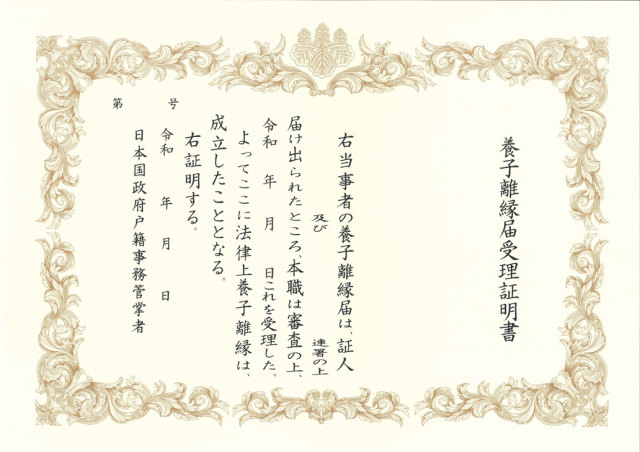 養子離縁届受理証明書
右当事者の養子離縁届は、証人
及び　連署の上
届け出られたところ、本職は審査の上、
令和　年　月　日これを受理した。
よってここに法律上養子離縁は、
成立したこととなる。
右証明する。
第　号
令和　年　月　日
日本国政府戸籍事務管掌者